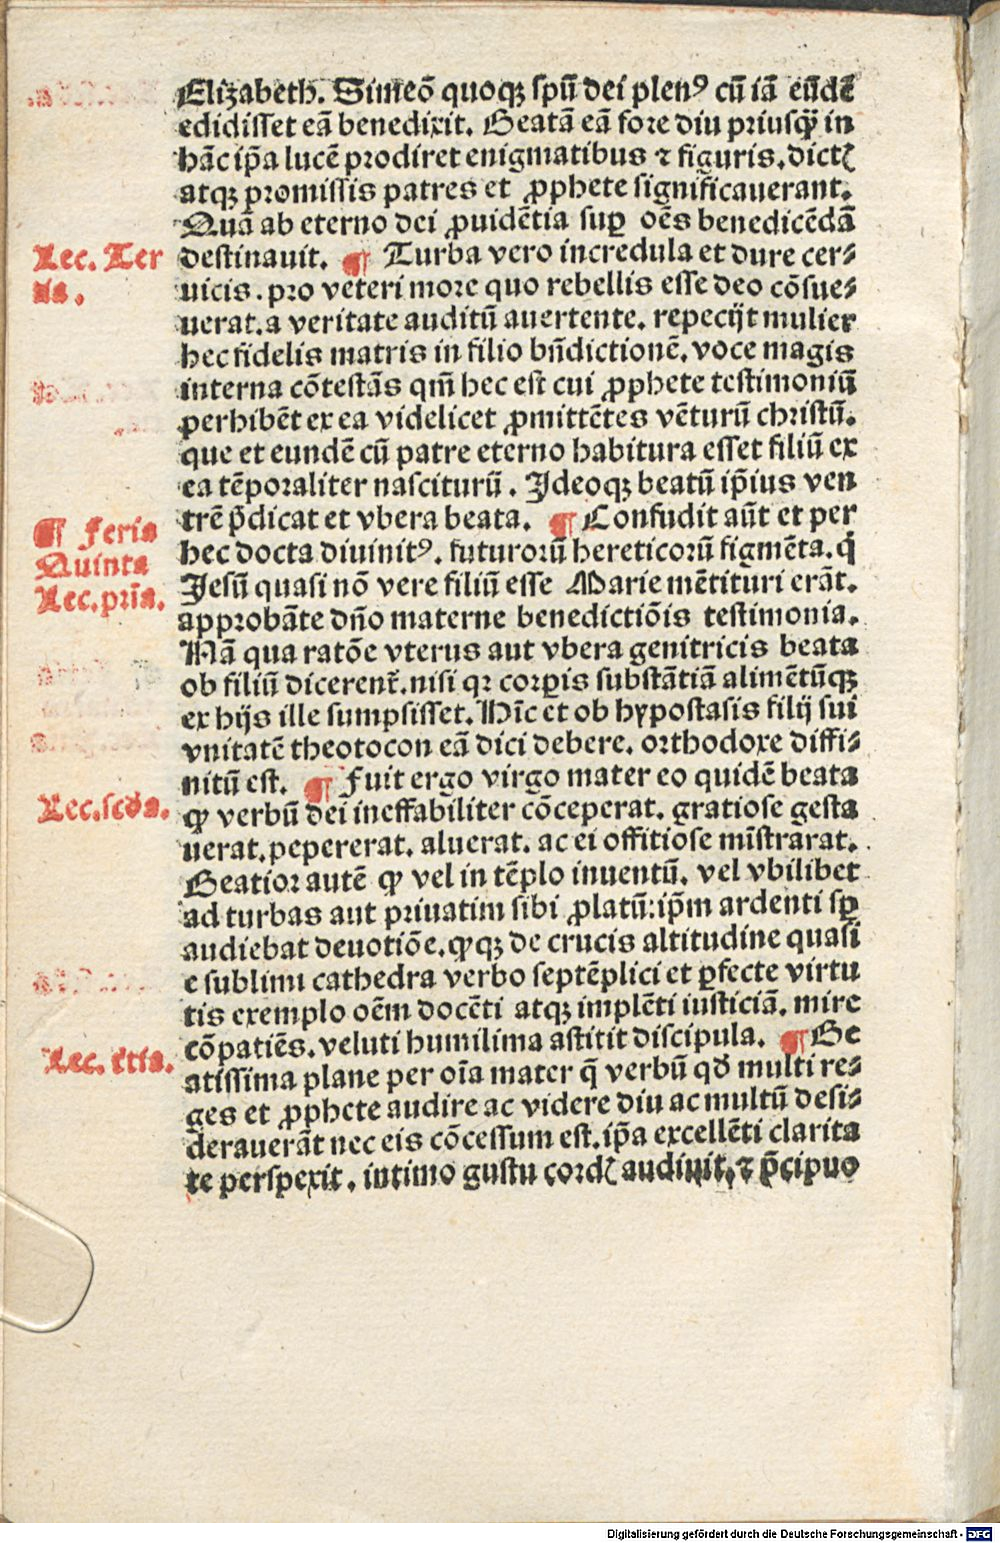 Elizabeth. Simeō quoqꝫ spū dei plenꝰ cū iā eūdē
edidisset eā benedixit. Beatā eā fore diu priusq̄ in
hāc ip̄a lucē prodiret enigmatibus ⁊ figuris. dictꝭ
atqꝫ promissis patres et ꝓphete significauerant.
Quā ab eterno dei ꝓuidētia suꝑ oēs benedicēdā
Lec. Ter destinauit. ¶ Turba vero incredula et dure cer⸗
tia. uicis. pro veteri more quo rebellis esse deo cōsue⸗
uerat. a veritate auditū auertente. repecijt mulier
hec fidelis matris in filio bn̄dictionē. voce magis
interna cōtestās qm̄ hec est cui ꝓphete testimoniū
perhibēt ex ea videlicet ꝓmittētes vēturū christū.
que et eundē cū patre eterno habitura esset filiū ex
ea tēporaliter nasciturū. Ideoqꝫ beatū ip̄ius ven
trē p̄dicat et vbera beata. ¶ Confudit aūt et per
¶ Feria hec docta diuinitꝰ. futurorū hereticorū figmēta. q̇
Quinta Jesū quasi nō vere filiū esse Marie mētituri erāt.
Lec. prīa. approbāte dn̄o materne benedictiōis testimonia.
Nā qua ratōe vterus aut vbera genitricis beata
ob filiū dicerent̄. nisi qꝛ corꝑis substātiā alimētūqꝫ
ex hijs ille sumpsisset. Hīc et ob hypostasis filij sui
vnitatē theotocon eā dici debere. orthodoxe diffi⸗
nitū est. ¶ Fuit ergo virgo mater eo quidē beata
Lec. scd̄a. ꝙ verbū dei ineffabiliter cōceperat. gratiose gesta
uerat. pepererat. aluerat. ac ei offitiose mīstrarat.
Beatior autē ꝙ vel in tēplo inuentū. vel vbilibet
ad turbas aut priuatim sibi ꝓlatū: ip̄m ardenti sꝑ
audiebat deuotiōe. ꝙqꝫ de crucis altitudine quasi
e sublimi cathedra verbo septēplici et ꝑfecte virtu
tis exemplo oēm docēti atqꝫ implēti iusticiā. mire
cōpatiēs. veluti humilima astitit discipula. ¶ Be
Lec. t̄tia. atissima plane per oīa mater q̄ verbū qđ multi re⸗
ges et ꝓphete audire ac videre diu ac multū desi⸗
derauerāt nec eis cōcessum est. ip̄a excellēti clarita
te perspexit. intimo gustu cordꝭ audiuit. ⁊ p̄cipuo
Digitalisierung gefördert durch die Deutsche Forschungsgemeinschaft - DFG